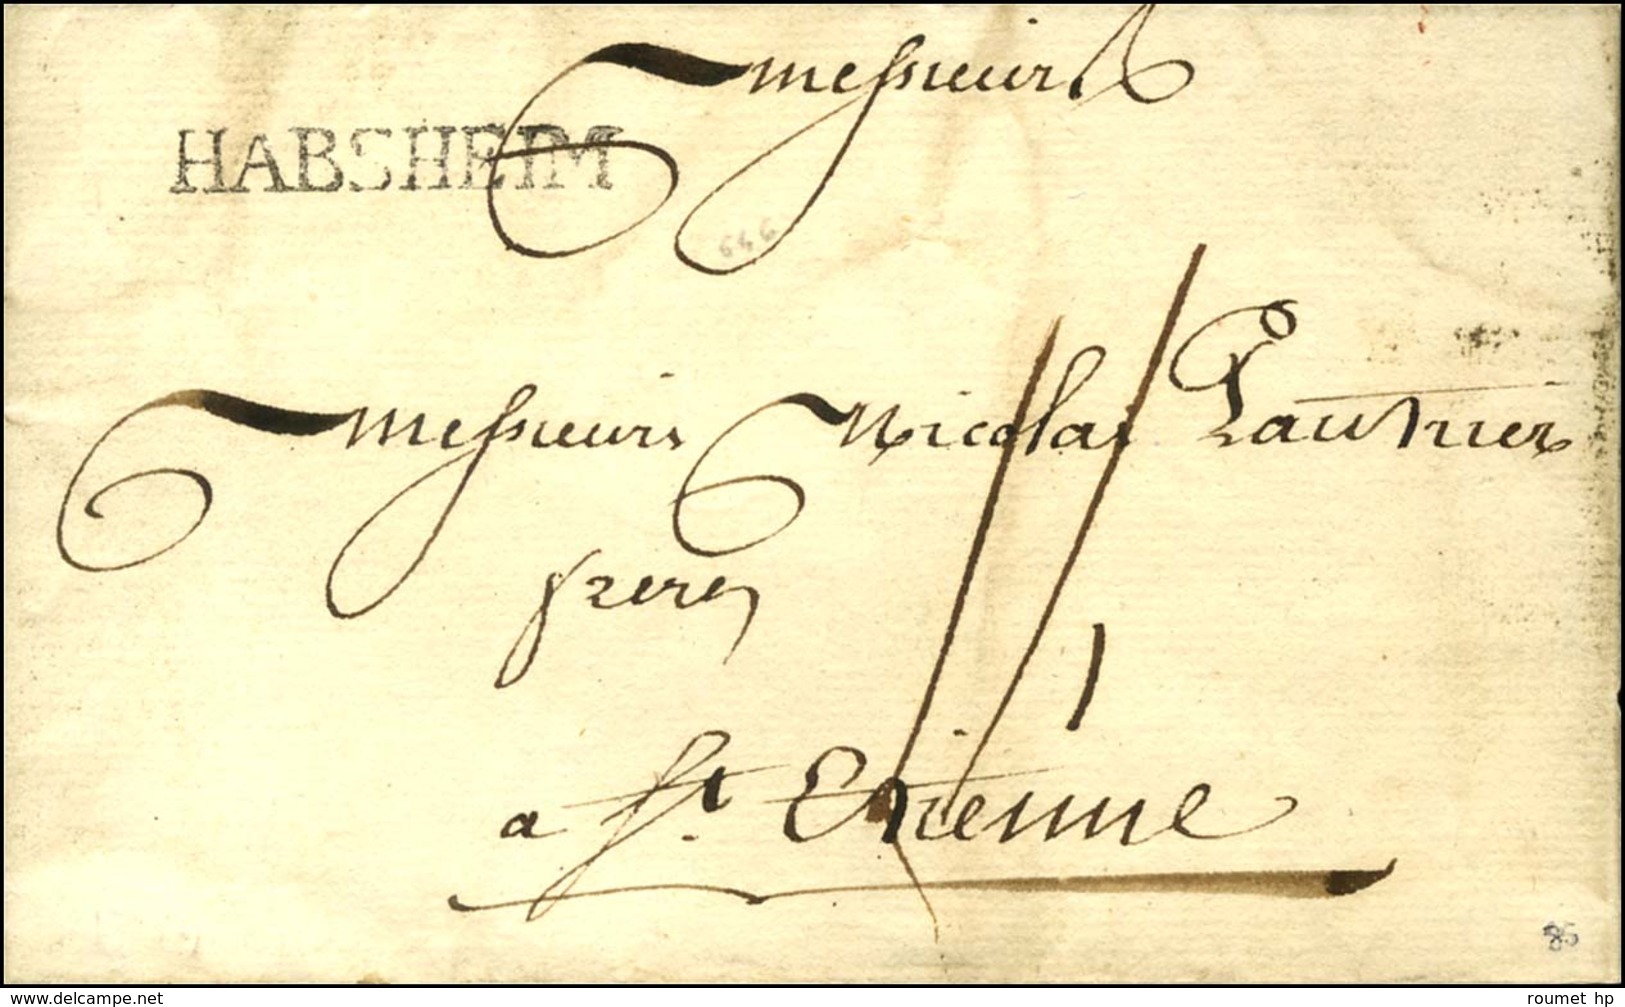 Messieurs
HABSHEIM
646
Messieurs Nicolas Pautrier
freres
11
a St. Etienne
85
www.delcampe.net
roumet hp